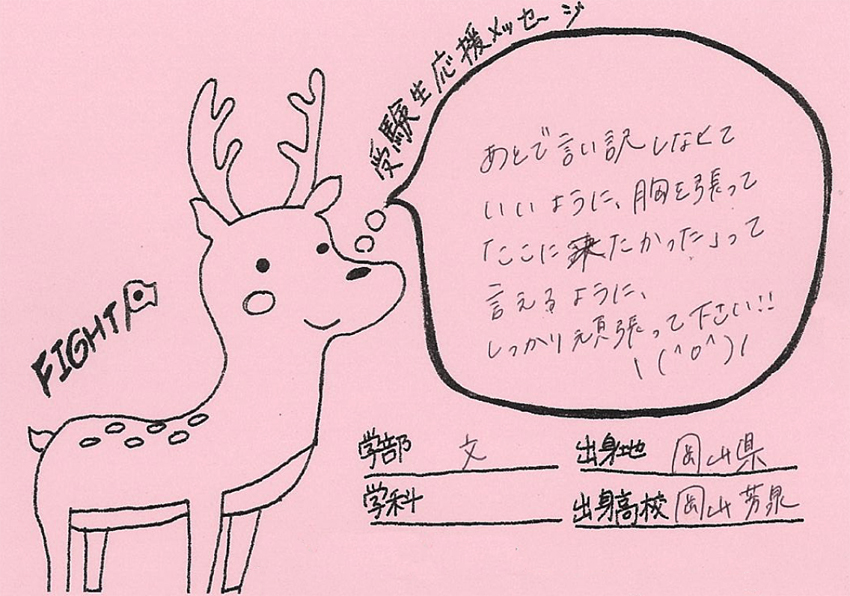 受験生応援メッセージ
あとで言い訳しなくて
いいように、胸を張って
「ここに来たかった」って
言えるように、
しっかり頑張って下さい!!
\(^o^)/
FIGHT
学部 文
出身地 岡山県
学科
出身高校 岡山芳泉